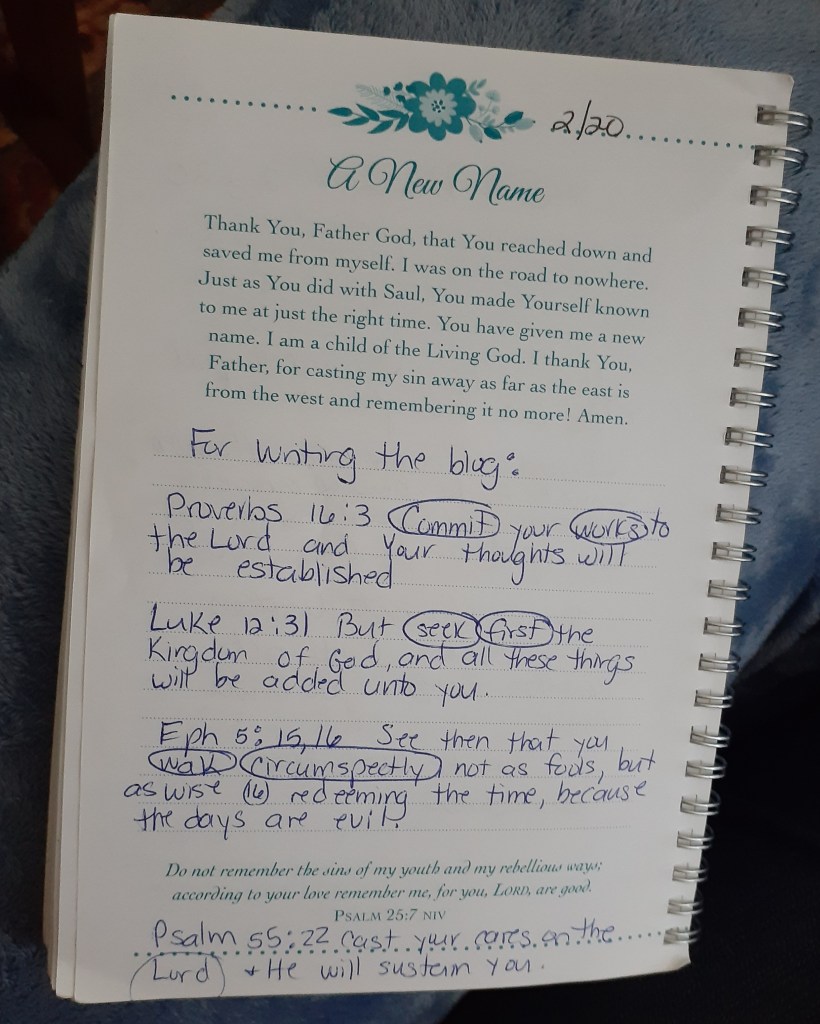 2/20
A New Name
Thank You, Father God, that You reached down and
saved me from myself. I was on the road to nowhere.
Just as You did with Saul, You made Yourself known
to me at just the right time. You have given me a new
name. I am a child of the Living God. I thank You,
Father, for casting my sin away as far as the east is
from the west and remembering it no more! Amen.
For writing the blog:
Proverbs 16:3 Commit your works to
the Lord and your thoughts will
be established
Luke 12:31 But seek first the
Kingdom of God, and all these things
will be added unto you.
Eph 5:15,16 See then that you
walk circumspectly not as fools, but
as wise (16) redeeming the time, because
the days are evil.
Do not remember the sins of my youth and my rebellious ways;
according to your love remember me, for you, LORD, are good.
PSALM 25:7 NIV
Psalm 55:22 Cast your cares on the
Lord + He will sustain you.